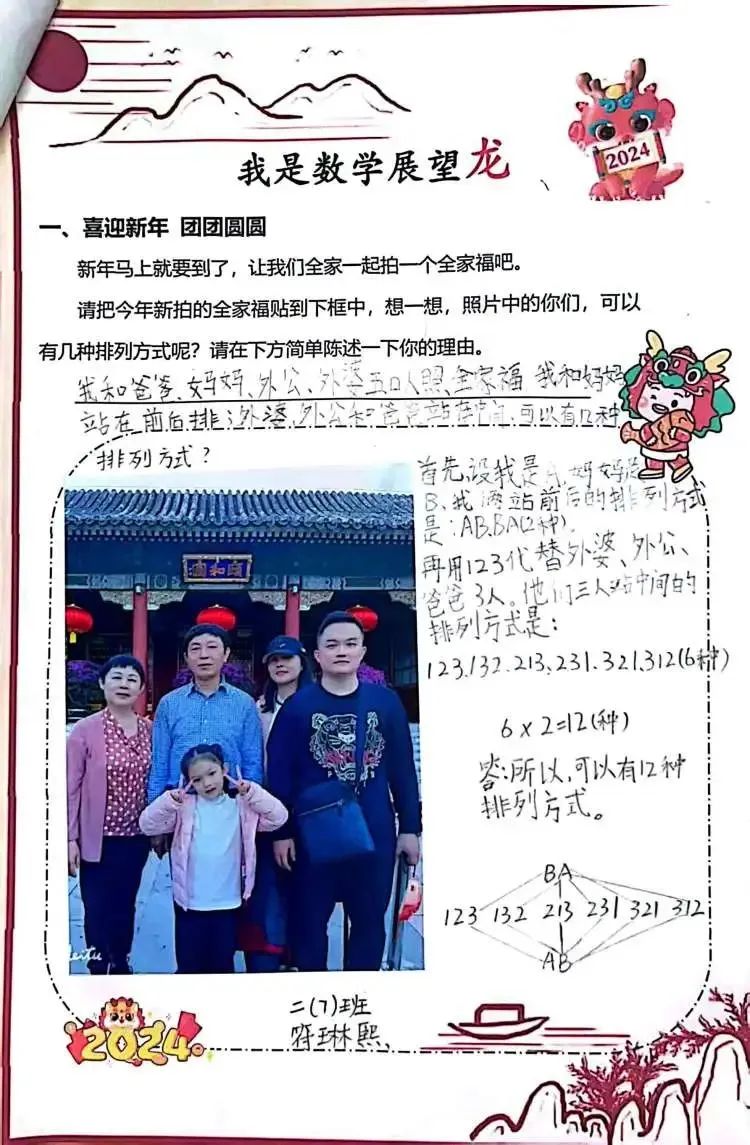 我是数学展望龙
2024
一、喜迎新年 团团圆圆
新年马上就要到了，让我们全家一起拍一个全家福吧。
请把今年新拍的全家福贴到下框中，想一想，照片中的你们，可以
有几种排列方式呢？请在下方简单陈述一下你的理由。
我和爸爸、妈妈、外公、外婆五口人照全家福。我和妈妈
站在前后排；外婆、外公和爸爸站在中间，可以有12种
排列方式？
首先，设我是A，妈妈是
B，我俩站前后的排列方式
是：AB、BA(2种)。
再用123代替外婆、外公、
爸爸3人。他们三人站中间的
排列方式是：
123.132.213.231.321.312(6种)
6×2=12(种)
答：所以，可以有12种
排列方式。
BA
123 132 213 231 321 312
AB
頤和園
meitu
2024
二(7)班
符琳熙